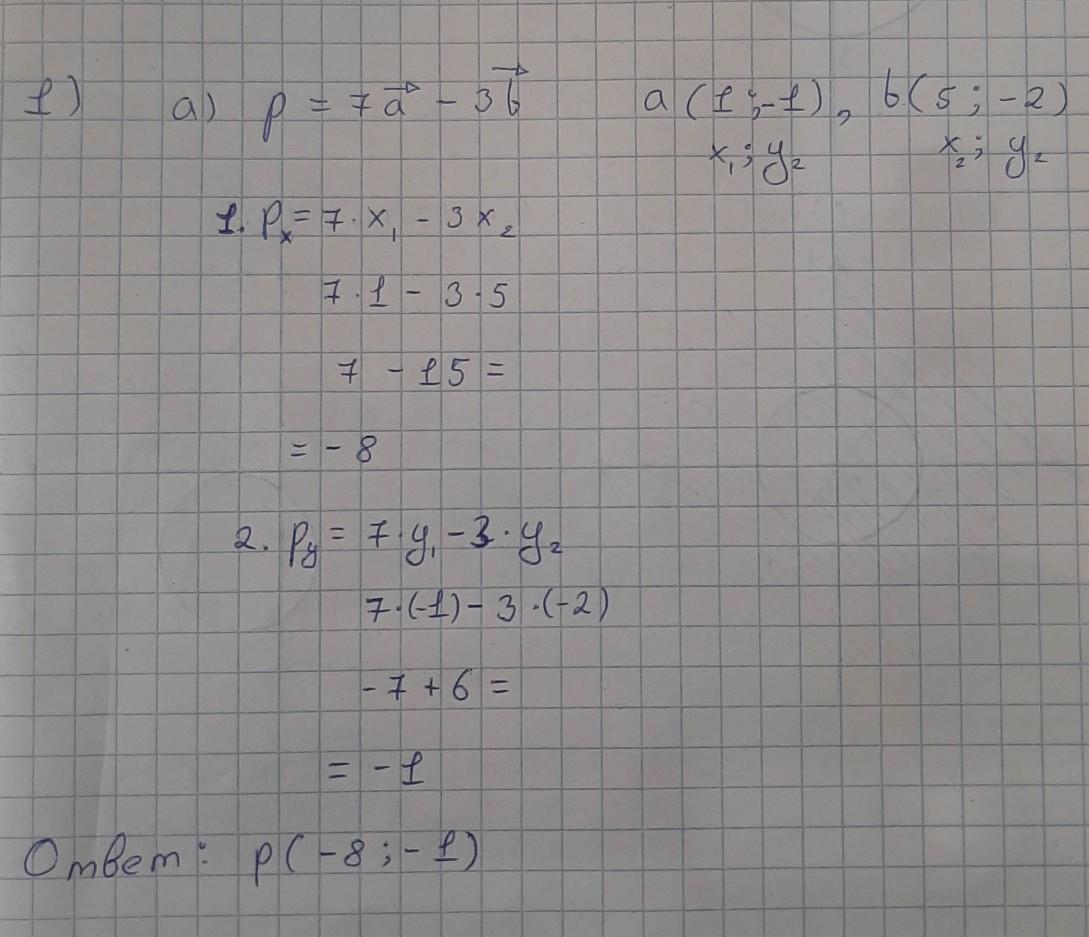 1) а) p = 7a⃗ - 3b⃗ a(1;-1), b(5;-2)
x₁; y₂ x₂; y₂
1. pₓ = 7·x₁ - 3x₂
7·1 - 3·5
7 - 15 =
= -8
2. p_y = 7·y₁ - 3·y₂
7·(-1) - 3·(-2)
-7 + 6 =
= -1
Ответ: p(-8;-1)